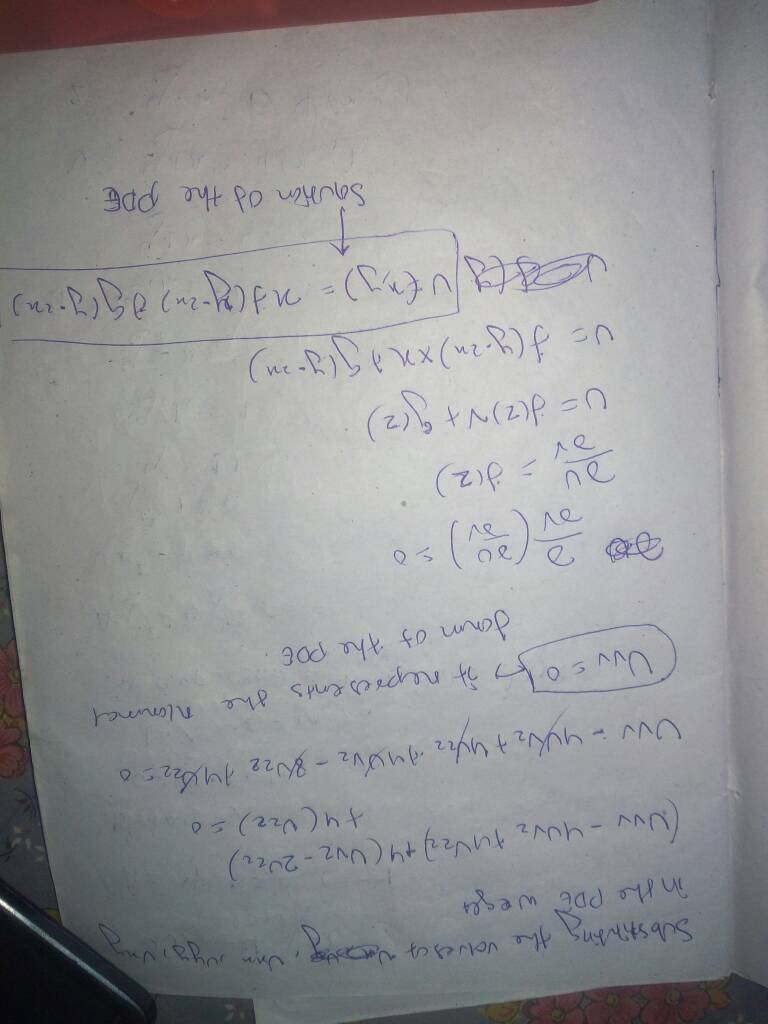 Substituting the values of Uxx, Uyy, Uxy
in the PDE we get
(Uvv - 4Uvz + 4Uzz) + 4(Uvz - 2Uzz)
+ 4(Uzz) = 0
Uvv - 4Uvz + 4Uzz + 4Uvz - 8Uzz + 4Uzz = 0
Uvv = 0 → it represents the normal
form of the PDE.
∂/∂v (∂u/∂v) = 0
∂u/∂v = f(z)
U = f(z)v + g(z)
U = f(y-2x) × x + g(y-2x)
U(x,y) = x f(y-2x) + g(y-2x)
Solution of the PDE